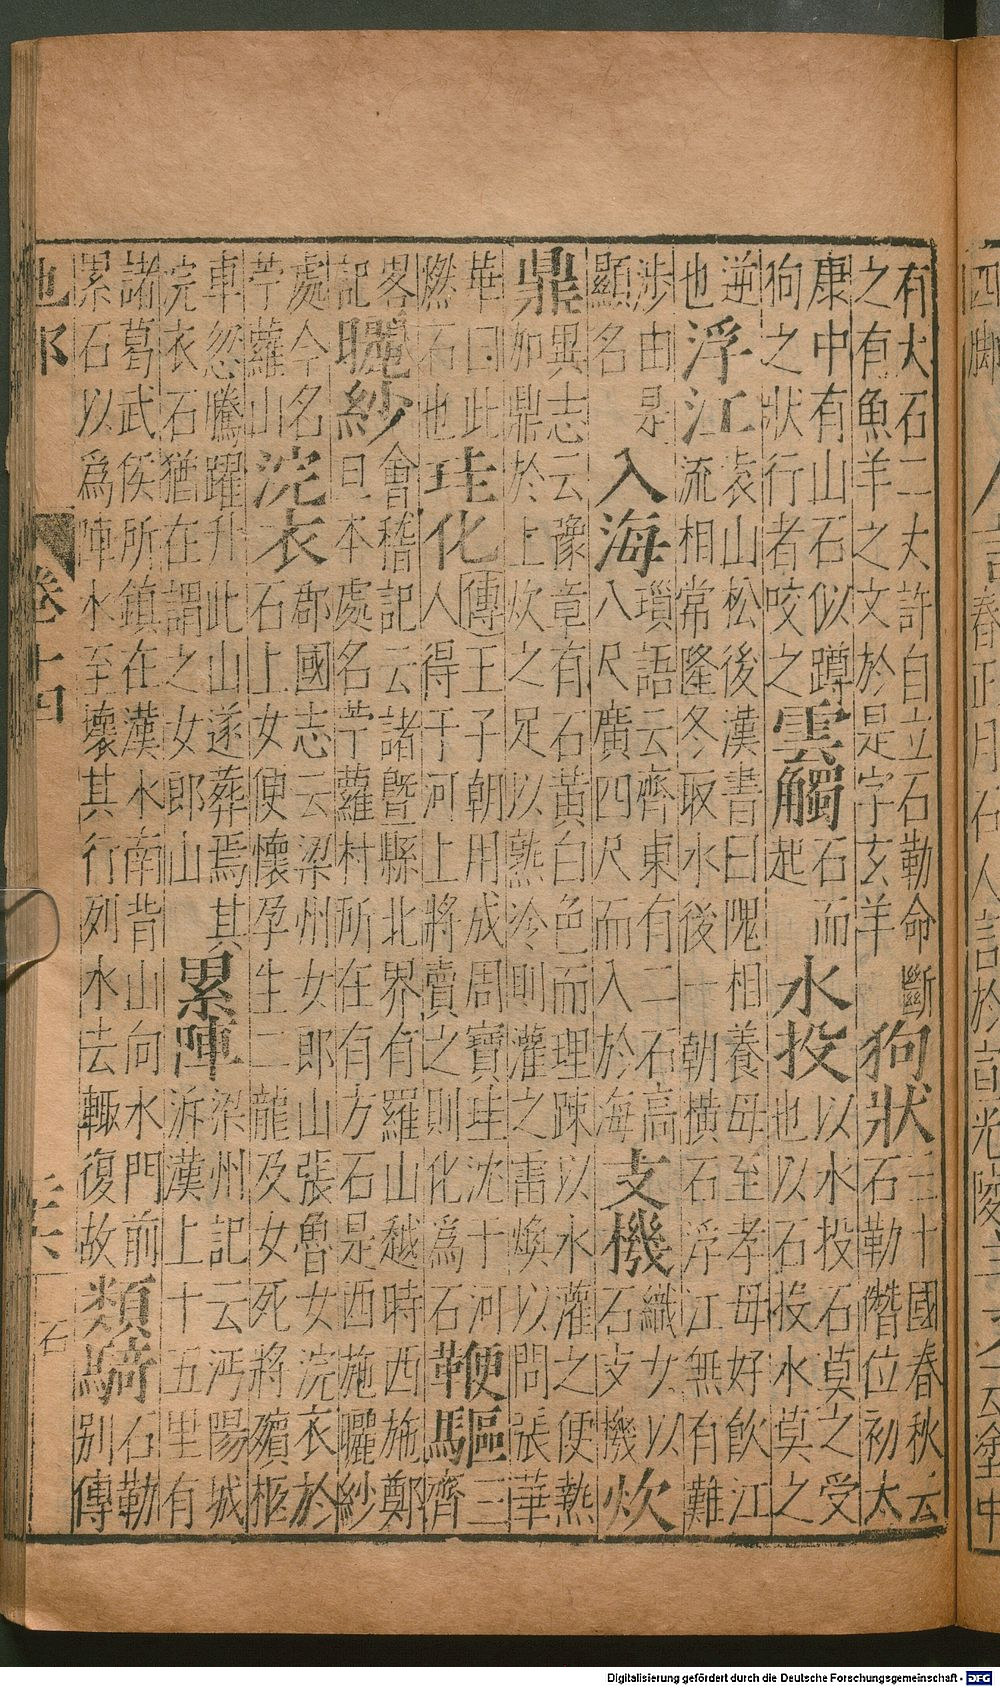 有大石二丈許自立石勒命斷之有魚羊之文於是字玄羊狗狀三十國春秋云石勒僭位初太
康中有山石似蹲狗之狀行者咬之雲觸石而起水投以水投石莫之受也以石投水莫之
逆也浮江袁山松後漢書曰隗相養母至孝母好飲江流相常隆冬取水後一朝橫石浮江無有難
涉由是顯名入海瑣語云齊東有二石高八尺廣四尺而入於海支機織女以石支機炊
鼎異志云豫章有石黃白色而理踈以水灌之便熱如鼎於上炊之足以熟冷則灌之雷煥以問張華
華曰此燃石也珪化傳王子朝用成周寶珪沈于河人得于河上將賣之則化爲石鞭驅三齊
畧記曬紗會稽記云諸曁縣北界有羅山越時西施鄭旦本處名苧蘿村所在有方石是西施曬紗
處今名苧蘿山浣衣郡國志云梁州女郎山張魯女浣衣於石上女便懷孕生二龍及女死將殯柩
車忽騰躍升此山遂葬焉其浣衣石猶在謂之女郎山累陣梁州記云沔陽城泝漢上十五里有
諸葛武侯所鎮在漢水南背山向水門前累石以爲陣水至壞其行列水去輒復故類騎石勒別傳
地部 卷十四 石
Digitalisierung gefördert durch die Deutsche Forschungsgemeinschaft - DFG